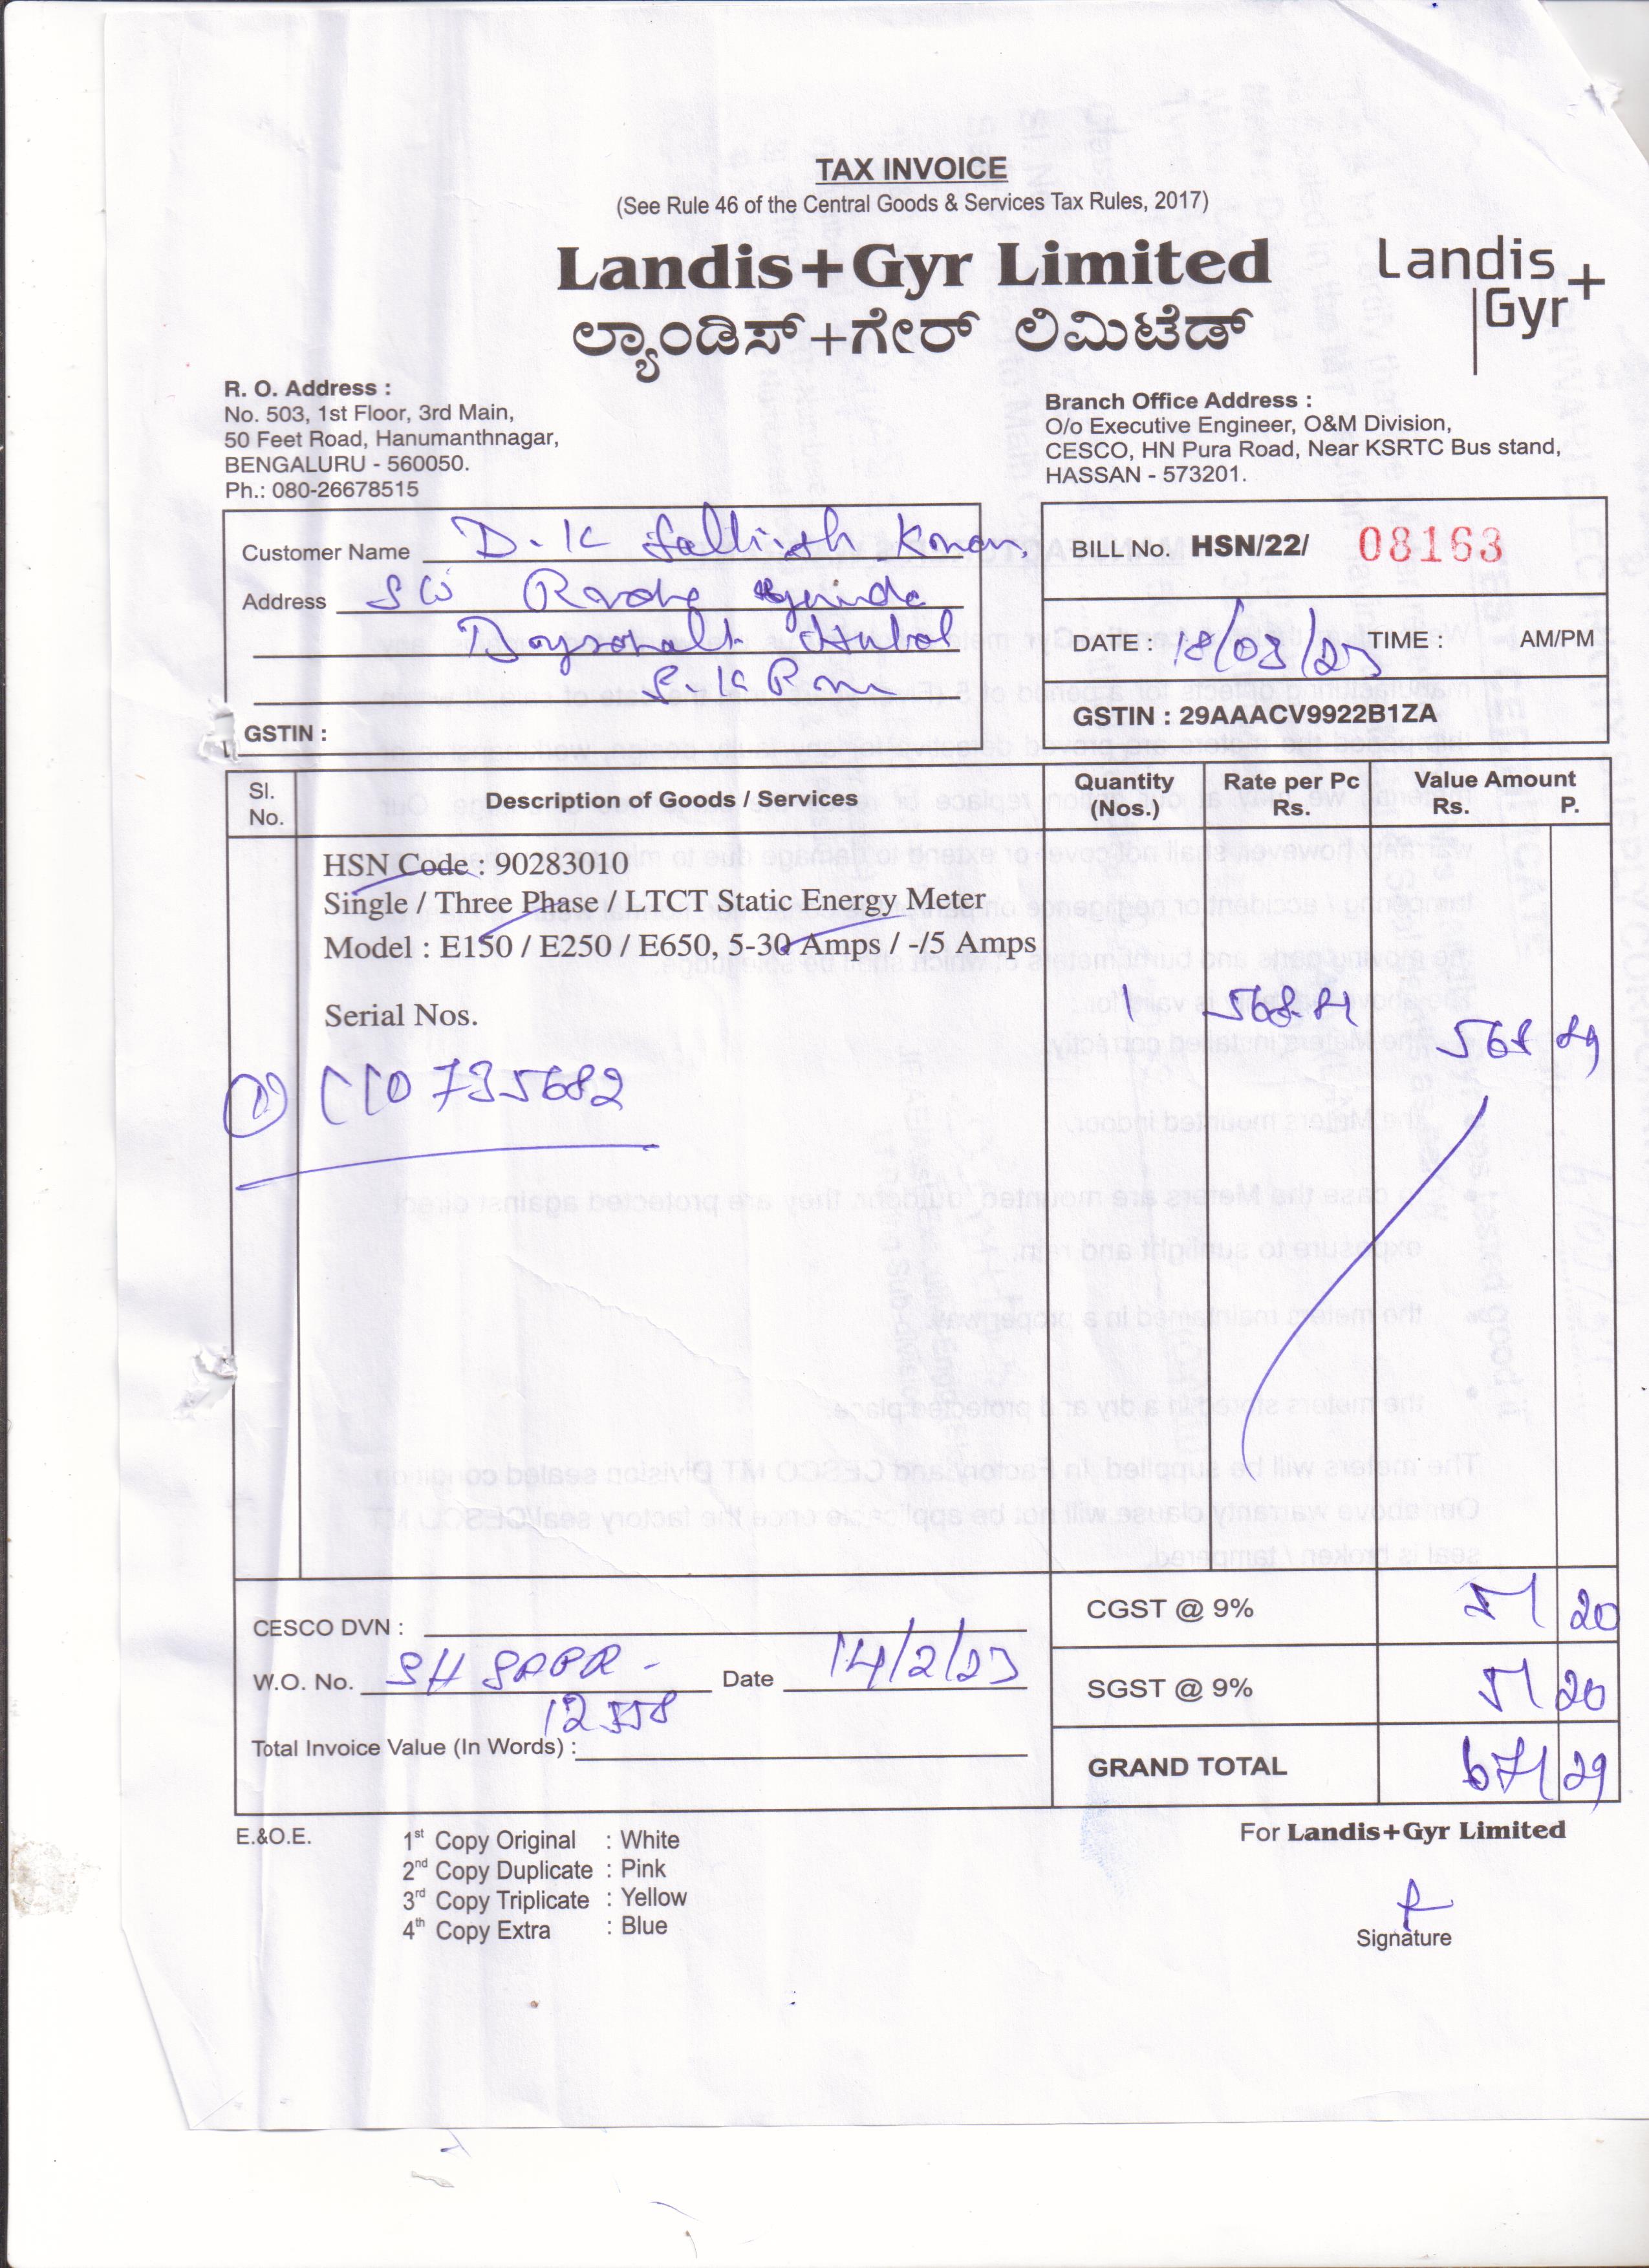 TAX INVOICE
(See Rule 46 of the Central Goods & Services Tax Rules, 2017)
Landis+Gyr Limited
ಲ್ಯಾಂಡಿಸ್+ಗೇರ್ ಲಿಮಿಟೆಡ್
Landis
Gyr+
R. O. Address :
No. 503, 1st Floor, 3rd Main,
50 Feet Road, Hanumanthnagar,
BENGALURU - 560050.
Ph.: 080-26678515
Branch Office Address :
O/o Executive Engineer, O&M Division,
CESCO, HN Pura Road, Near KSRTC Bus stand,
HASSAN - 573201.
Customer Name D.K
Address
GSTIN :
BILL No. HSN/22/ 08163
DATE : 18/03/23 TIME : AM/PM
GSTIN : 29AAACV9922B1ZA
Sl. No. Description of Goods / Services Quantity (Nos.) Rate per Pc Rs. Value Amount Rs. P.
HSN Code : 90283010
Single / Three Phase / LTCT Static Energy Meter
Model : E150 / E250 / E650, 5-30 Amps / -/5 Amps
Serial Nos. 1
568 89
735682
CESCO DVN :
W.O. No. Date 14/2/23
Total Invoice Value (In Words) :
CGST @ 9% 51 20
SGST @ 9% 51 20
GRAND TOTAL 671 29
E.&O.E.
1st Copy Original : White
2nd Copy Duplicate : Pink
3rd Copy Triplicate : Yellow
4th Copy Extra : Blue
For Landis+Gyr Limited
Signature